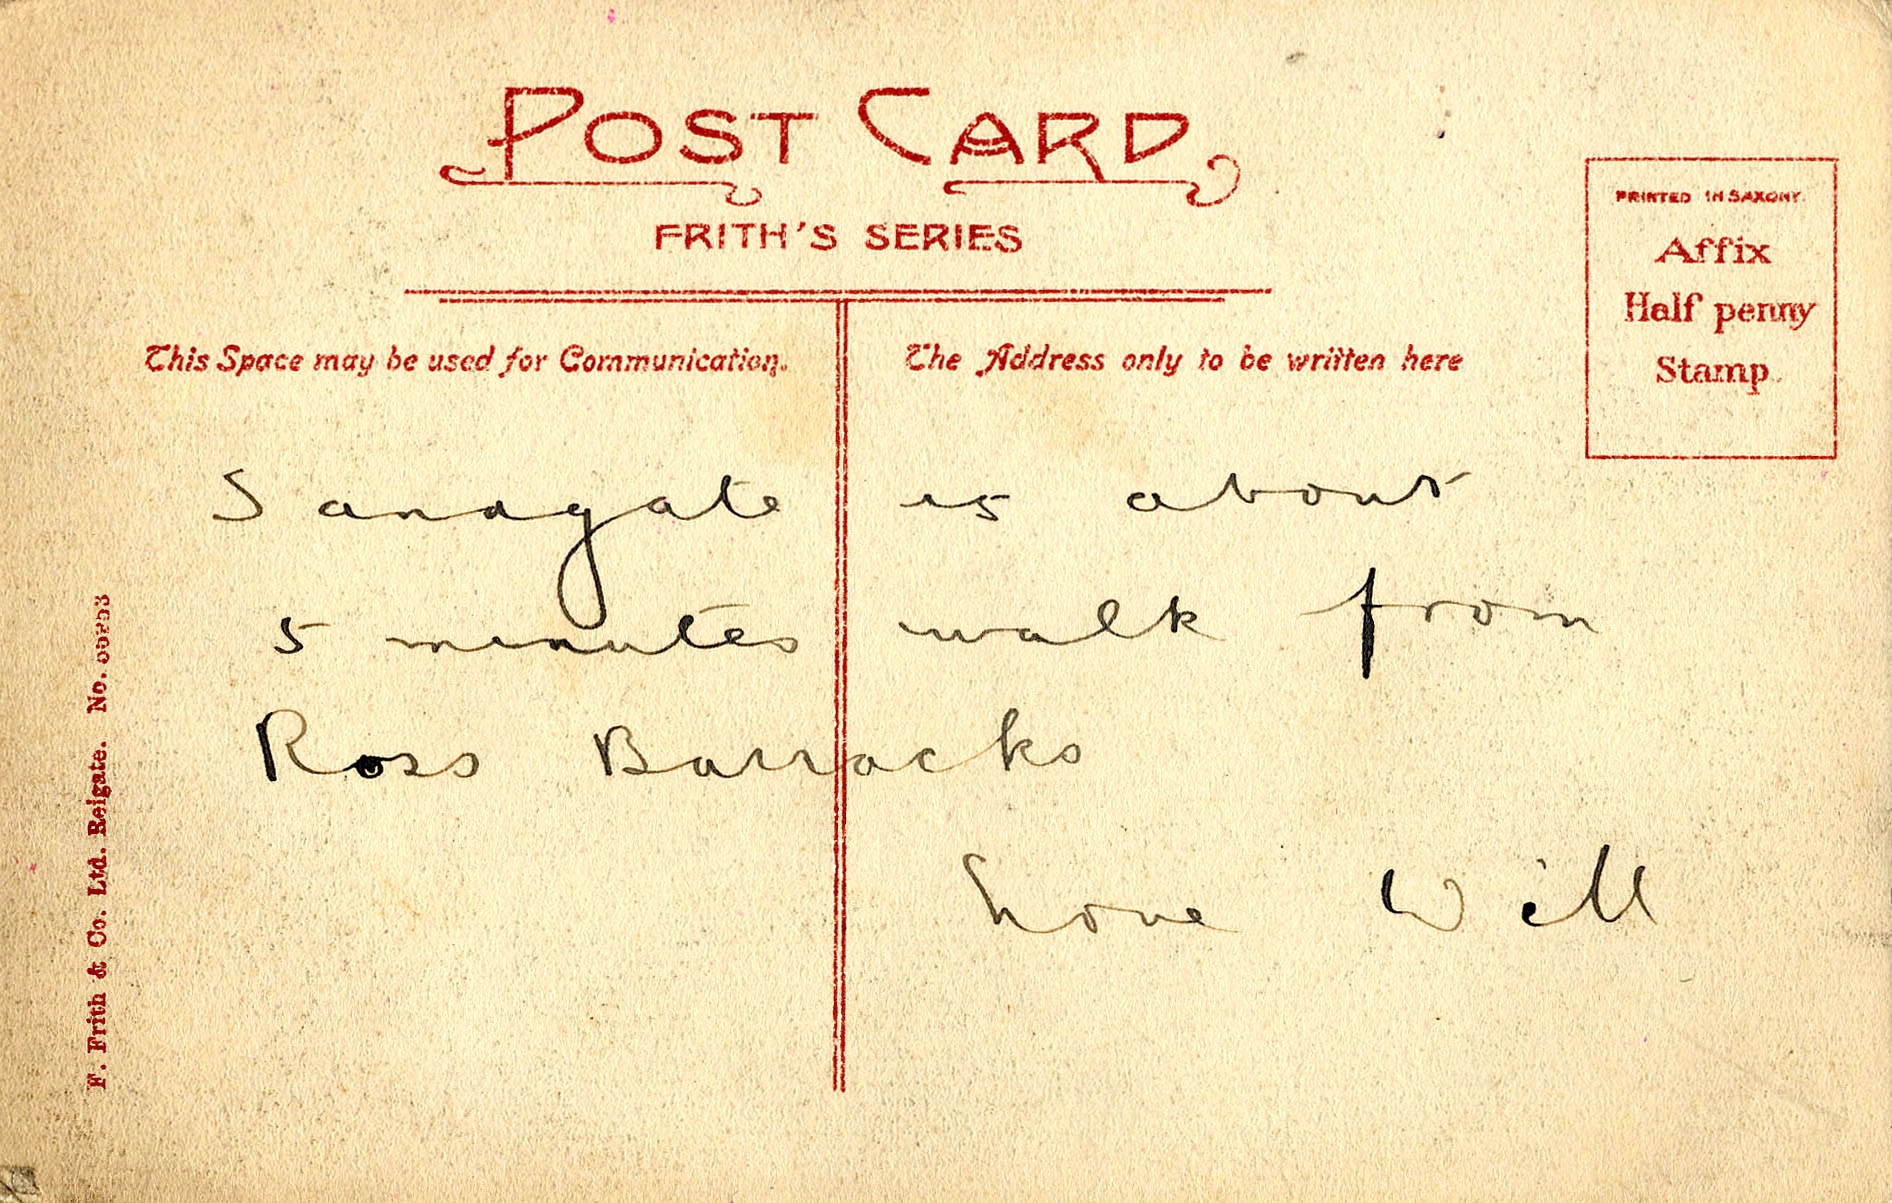 POST CARD
FRITH'S SERIES
PRINTED IN SAXONY.
Affix
Half penny
Stamp.
This Space may be used for Communication.
The Address only to be written here
Sandgate is about
5 minutes walk from
Ross Barracks
Love Will
F. Frith & Co. Ltd. Reigate. No.